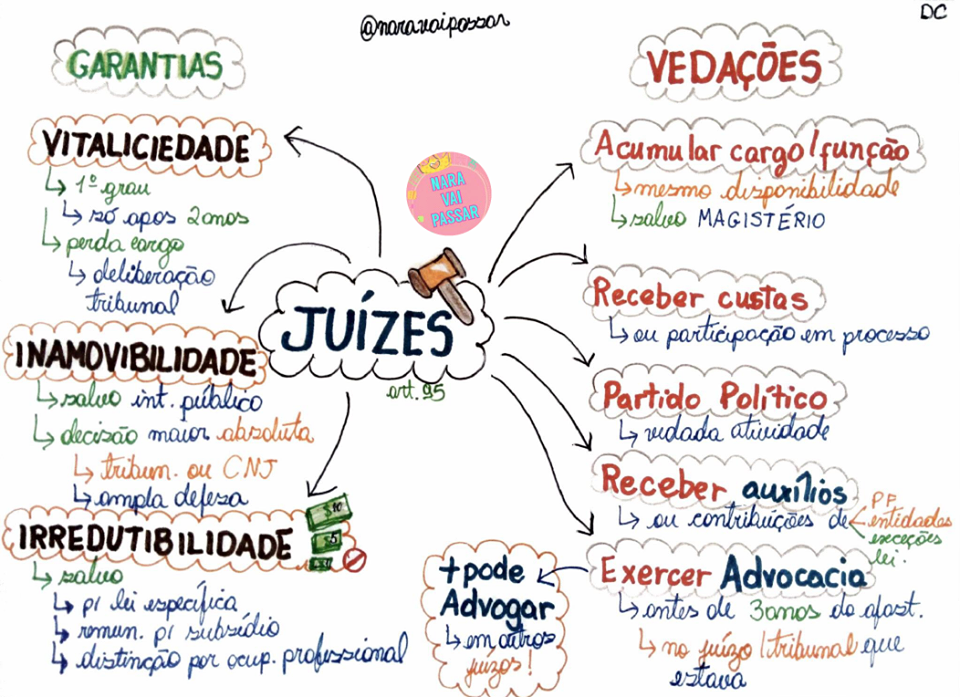 @naravaipassar
DC
GARANTIAS
VITALICIEDADE
1º grau
só apos 2 anos
perda cargo
deliberação
tribunal
INAMOVIBILIDADE
salvo int. público
decisão maior absoluta
tribun. ou CNJ
ampla defeza
IRREDUTIBILIDADE
$10
$5
salvo
p/ lei específica
remun. p/ subsídio
distinção por ocup. professional
NARA
VAI
PASSAR
JUÍZES
art. 95
VEDAÇÕES
Acumular cargo/função
mesmo disponibilidade
salvo MAGISTÉRIO
Receber custas
ou participação em processo
Partido Político
vedada atividade
Receber auxílios
ou contribuições de
P.F.
entidades
exceções
lei.
Exercer Advocacia
antes de 3 anos do afast.
no juízo/tribunal que
estava
+ pode
Advogar
em outros
juízos!